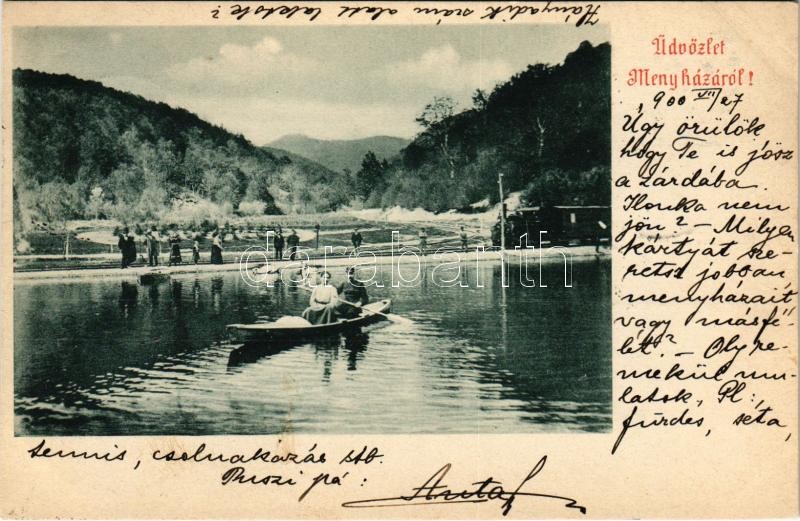 Hányadik szám alatt laktok?
Üdvözlet
Menyházáról!
900 VII/27
Úgy örülök
hogy Te is jösz
a zárdába.
Ilonka nem
jön? - Milyen
kártyát sze-
retsz jobban
menyházait
vagy másfé-
lét? - Oly re-
mekül mu-
latok, Pl:
fürdes, séta,
tennis, csolnakazás stb.
Puszi pá:
darabanth